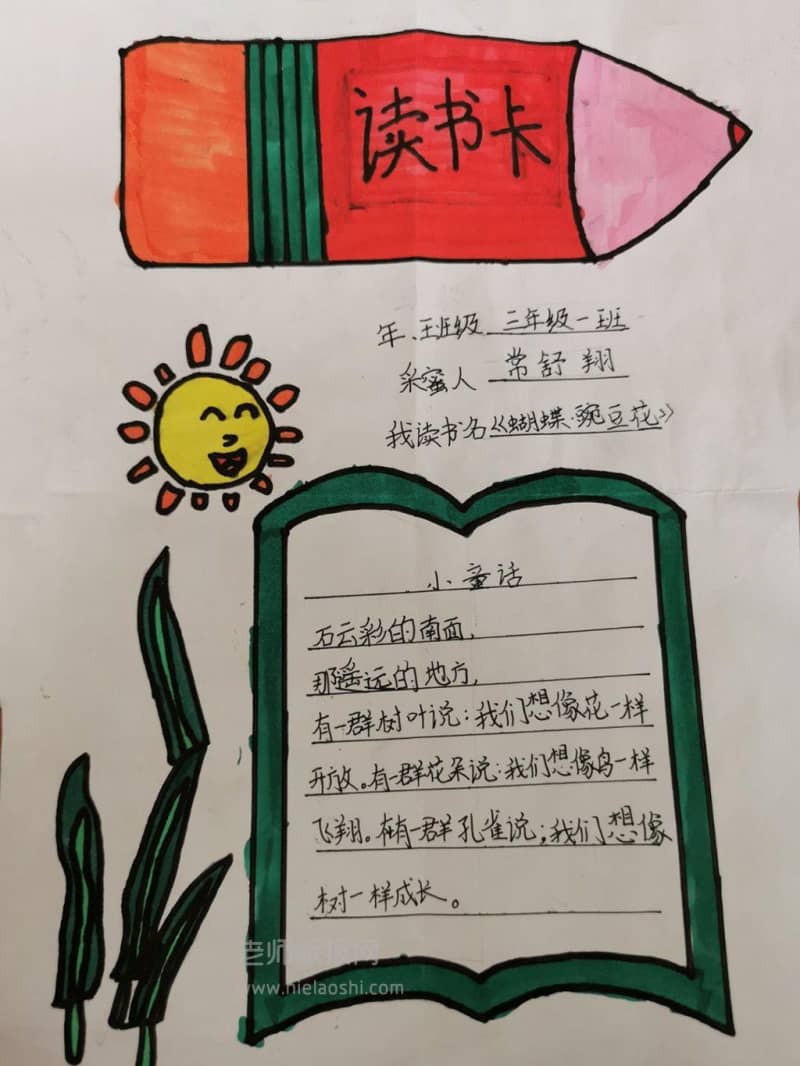 读书卡
年、班级 三年级一班
采蜜人 常舒翔
我读书名《蝴蝶·豌豆花》
小童话
石云彩的南面,
那遥远的地方,
有一群树叶说:我们想像花一样
开放。有一群花朵说:我们想像鸟一样
飞翔。有一群孔雀说;我们想像
树一样成长。
www.nielaoshi.com